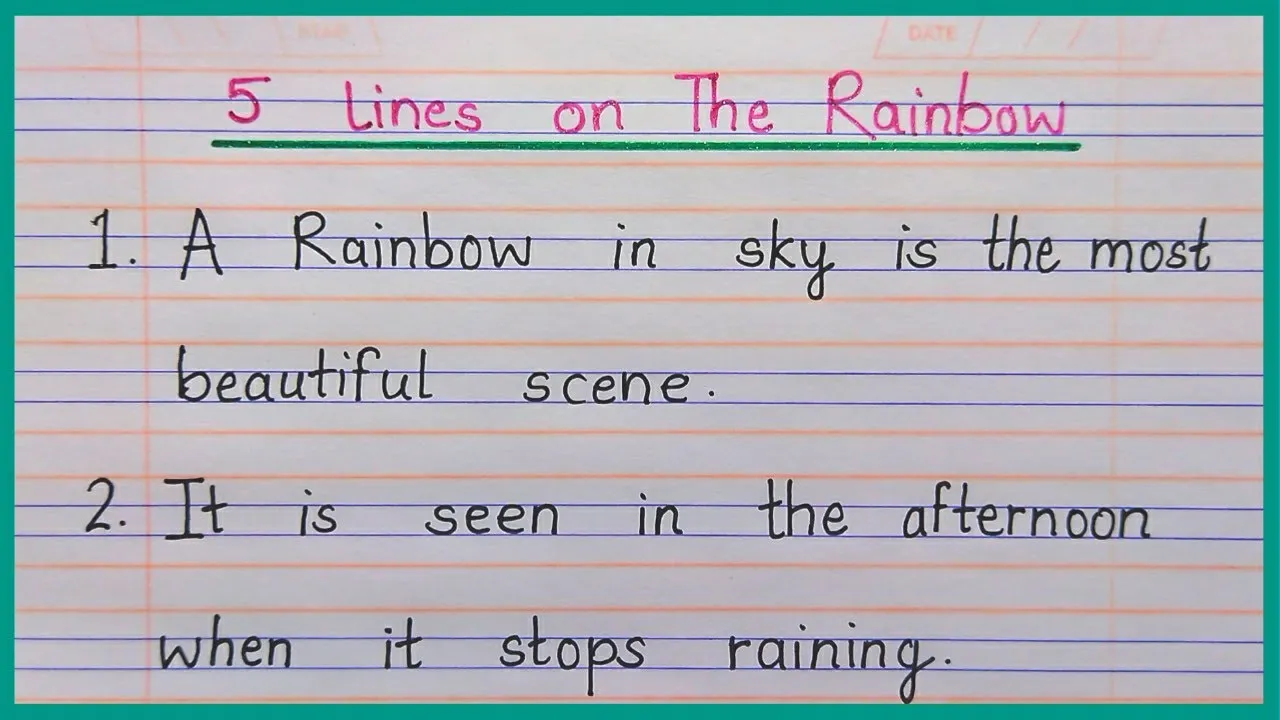 DATE
5 lines on The Rainbow
1. A Rainbow in sky is the most
beautiful scene.
2. It is seen in the afternoon
when it stops raining.